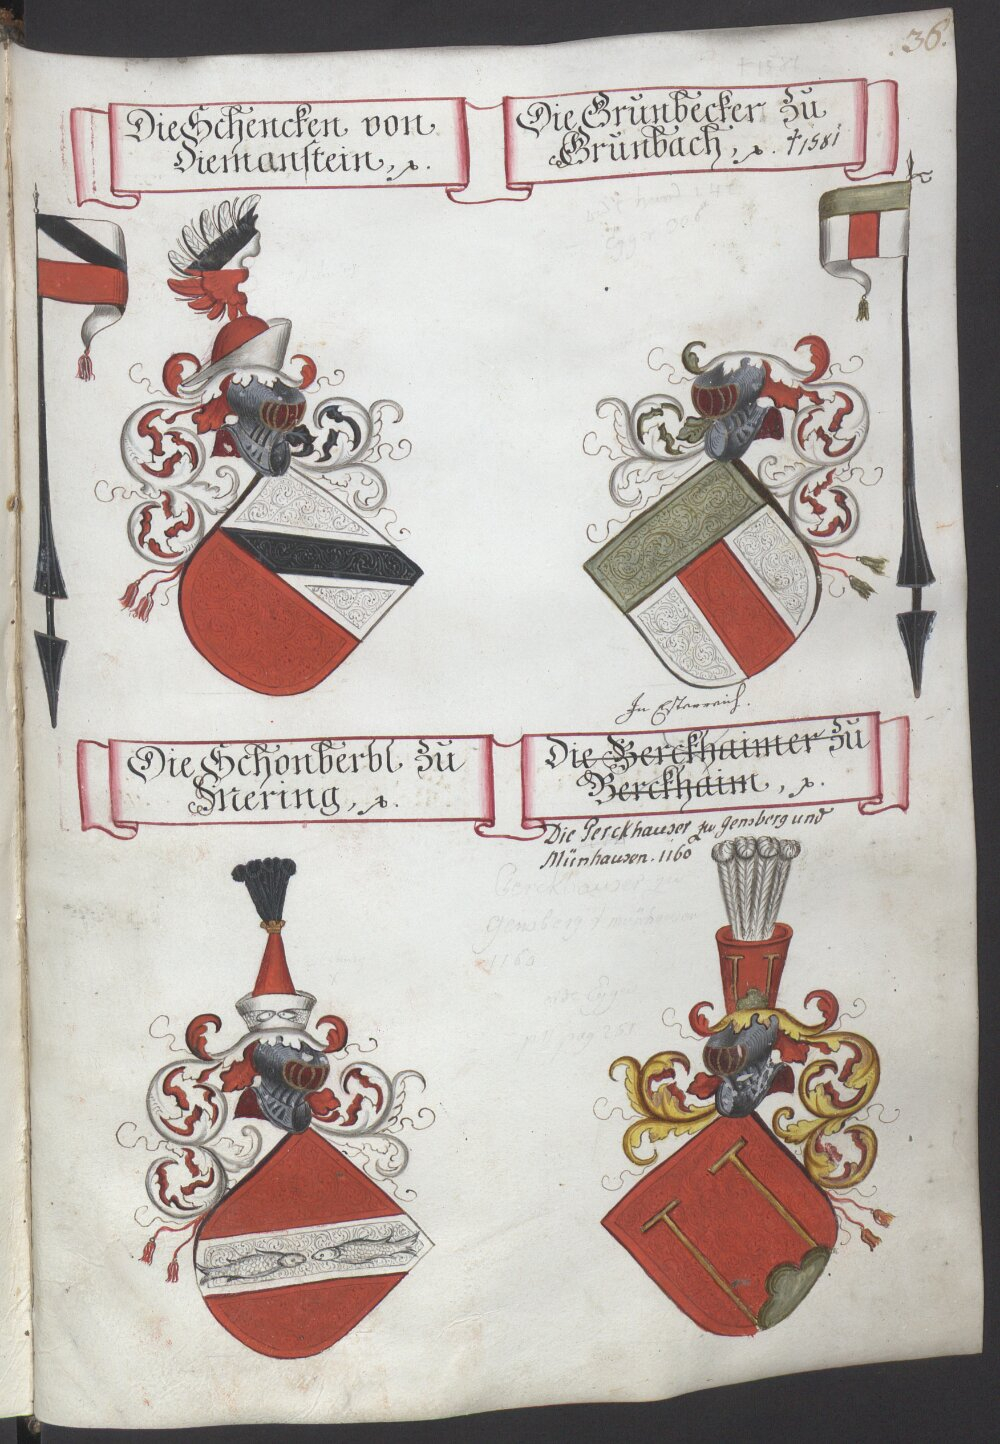 36.
† 1581
Die Schencken von
Diemanstein, ꝛc.
Die Grünbecker zu
Grünbach, ꝛc. † 1581
Die Schönberbl zu
Mering, ꝛc.
In Esterreich.
Die Berckhaimer zu
Berckhaim, ꝛc.
Die Perckhauser zu Gensberg und
Münhausen. 1160
Perckhauser zu
Gensberg
1160
pag